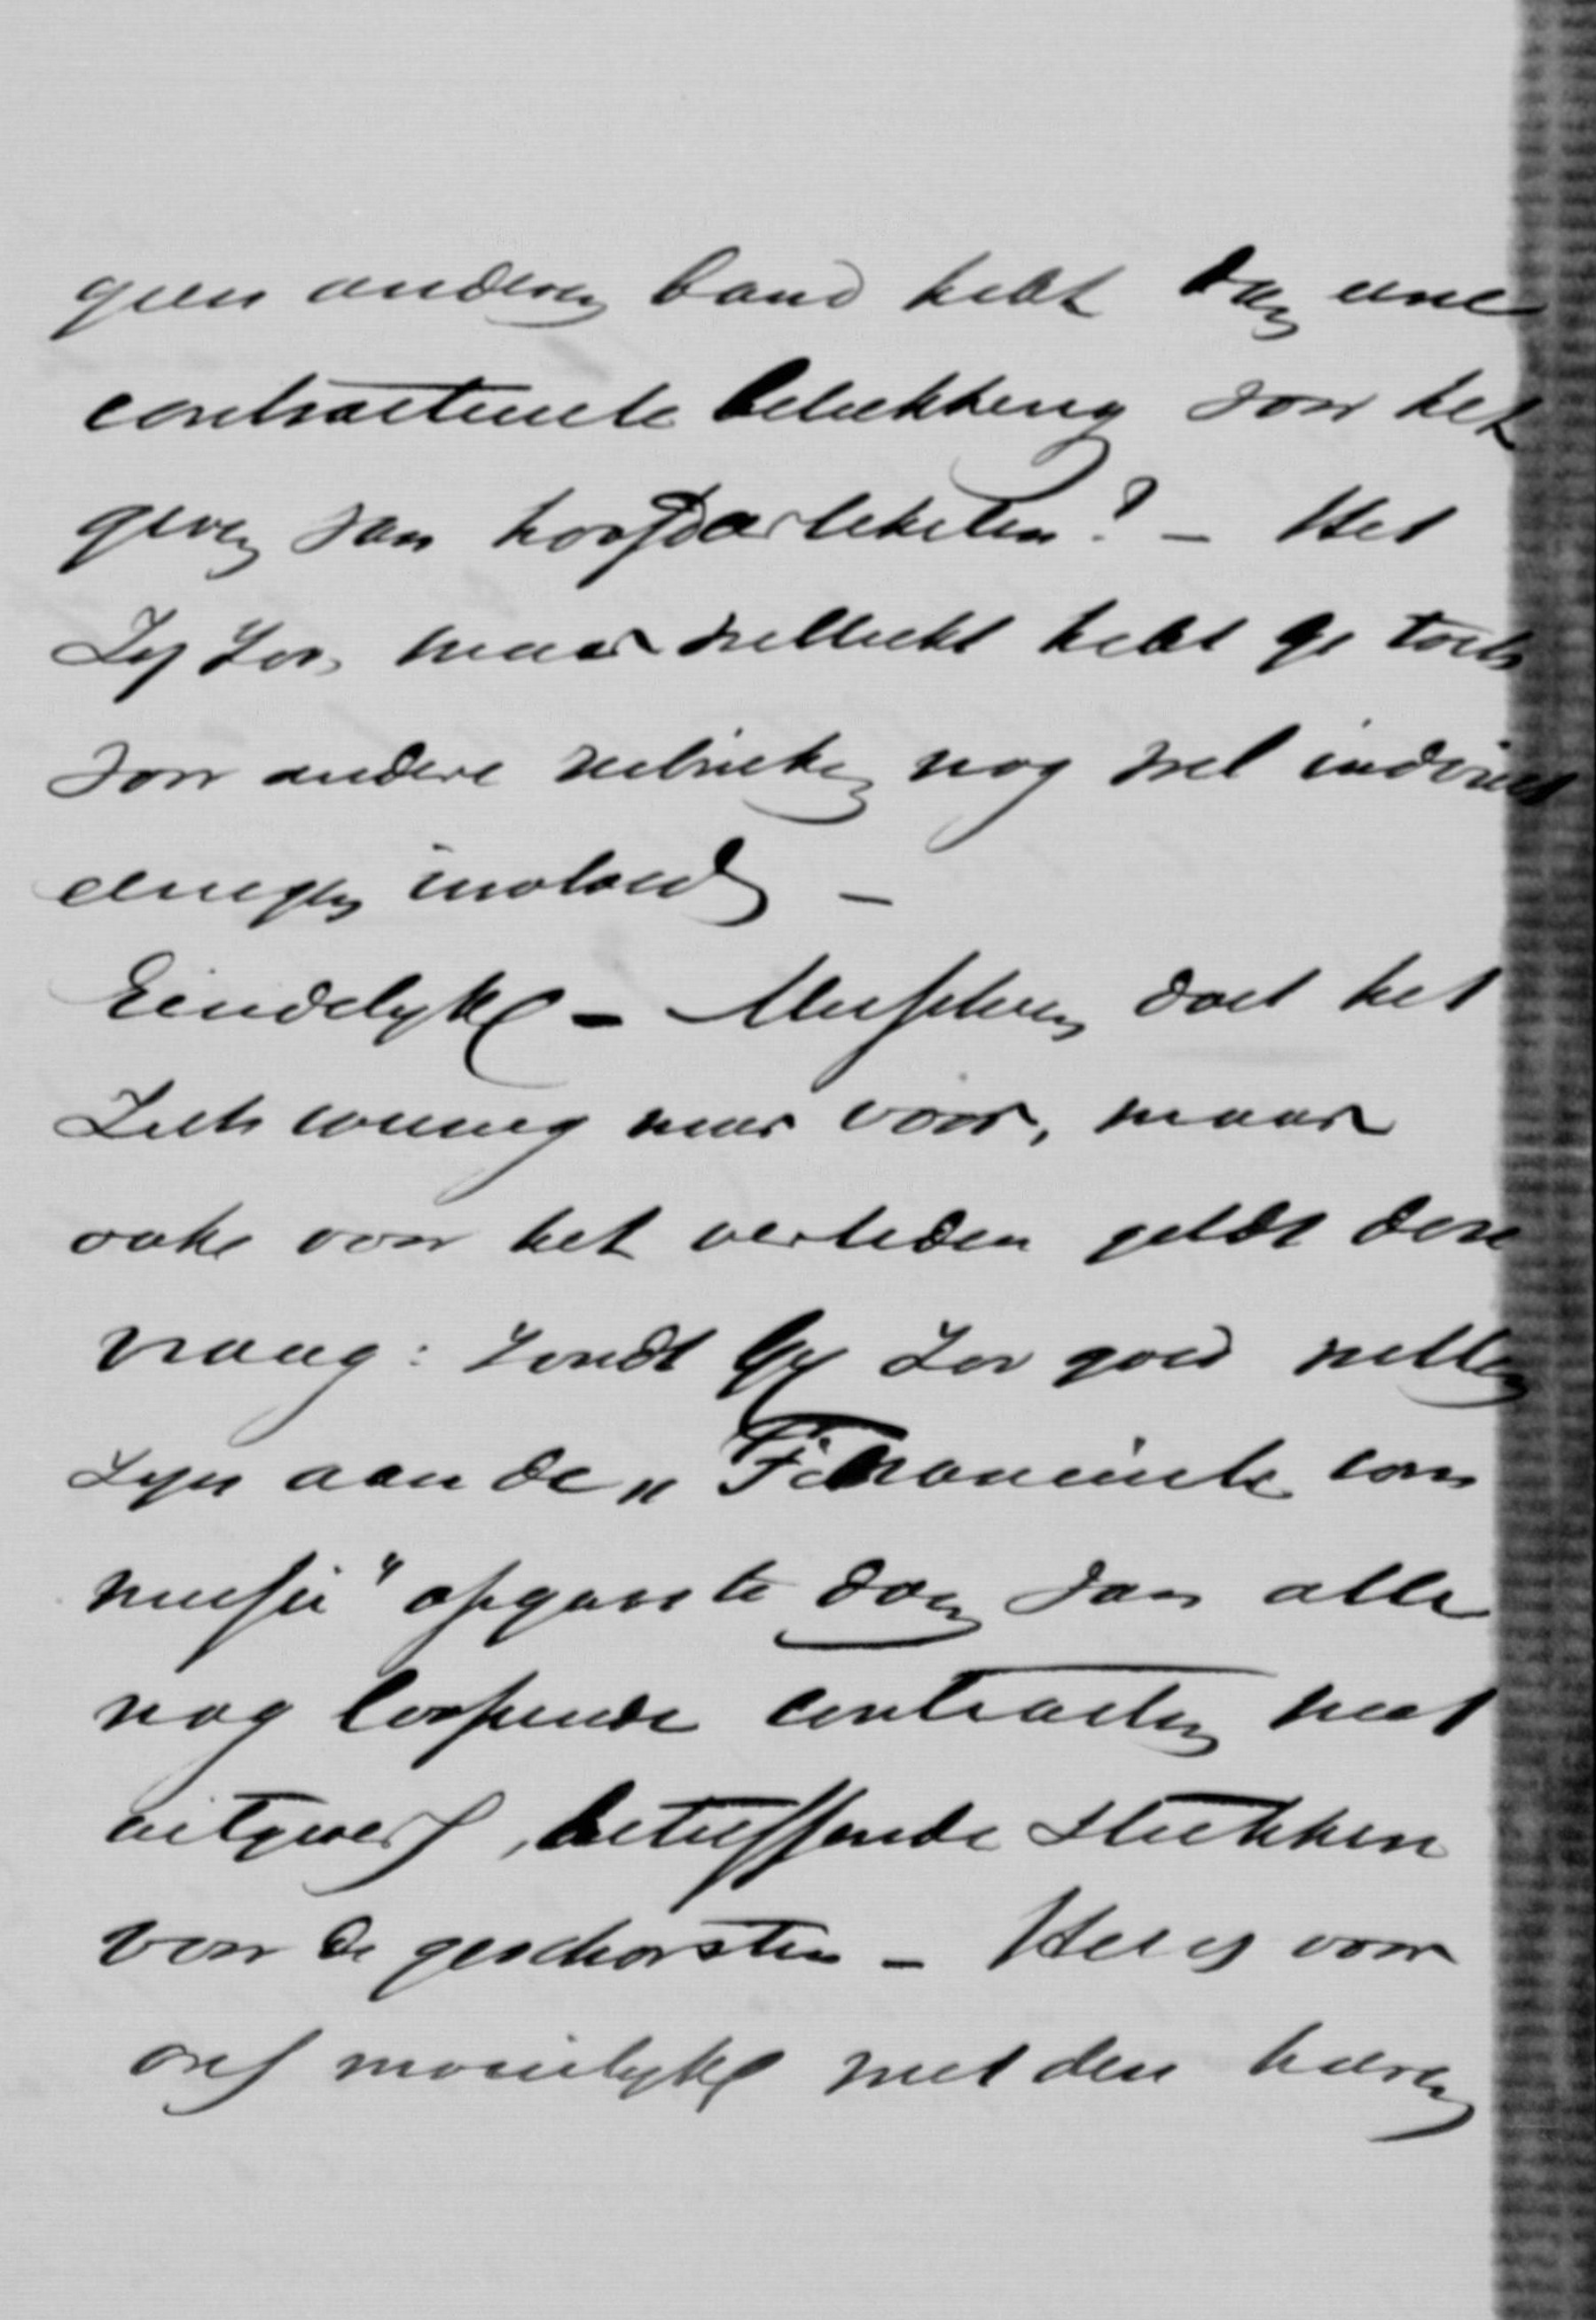 geen anderen band hebt dan eene
contractueele betrekking voor het
geven van hoofdartikelen? – Het
zij zoo, maar wellicht hebt ge toch
voor andere rubrieken nog wel indirect
eenigen invloed –
Eindelyk – Misschien doet het
zich weinig meer voor, maar
ook voor het verleden geldt deze
vraag: Zoudt Gy zoo goed willen
zyn aan de „Financieele com
missie" opgave te doen van alle
nog loopende contracten met
uitgevers, betreffende stukken
voor de geschorsten – Het is voor
ons moeielyk met den heeren